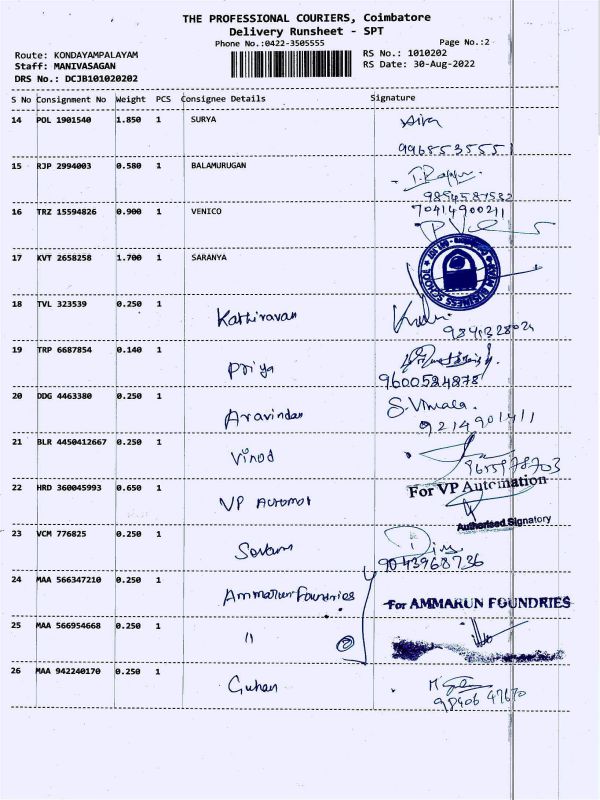 THE PROFESSIONAL COURIERS, Coimbatore
Delivery Runsheet - SPT
Phone No.:0422-3505555
Page No.:2
Route: KONDAYAMPALAYAM
RS No.: 1010202
Staff: MANIVASAGAN
RS Date: 30-Aug-2022
DRS No.: DCJB101020202
S No Consignment No Weight PCS Consignee Details Signature
14 POL 1901540 1.850 1 SURYA
9965535551
15 RJP 2994003 0.580 1 BALAMURUGAN
9894587582
16 TRZ 15594826 0.900 1 VENICO 70414900211
17 KVT 2658258 1.700 1 SARANYA
BUSINESS SCHOOL
18 TVL 323539 0.250 1 Kathiravan
19 TRP 6687854 0.140 1 Priya
9600524878
20 DDG 4463380 0.250 1 Aravindan S.Vimala.
9214901411
21 BLR 4450412667 0.250 1 Vinod
9655978703
22 HRD 360045993 0.650 1 VP Automat For VP Automation
Authorised Signatory
23 VCM 776825 0.250 1
9043968736
24 MAA 566347210 0.250 1 Ammarun Foundries For AMMARUN FOUNDRIES
25 MAA 566954668 0.250 1 "
26 MAA 942240170 0.250 1 Guhan
98406 47670